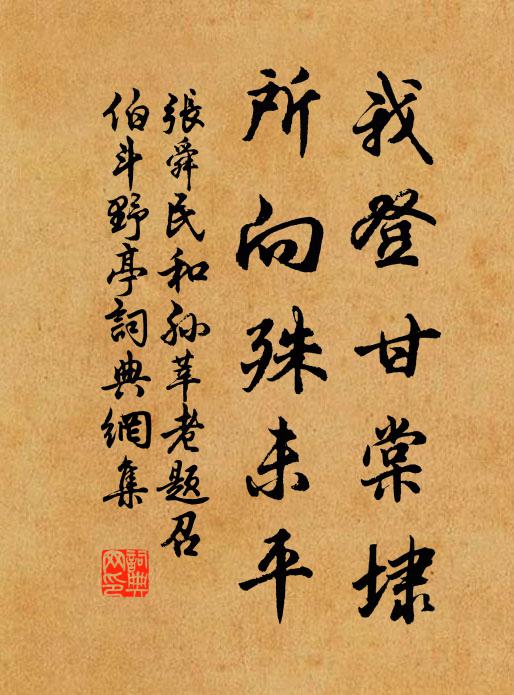 我登甘棠埭
所向殊未平
張舜民和孙莘老题召
伯斗野亭詞典網集
詞典網印